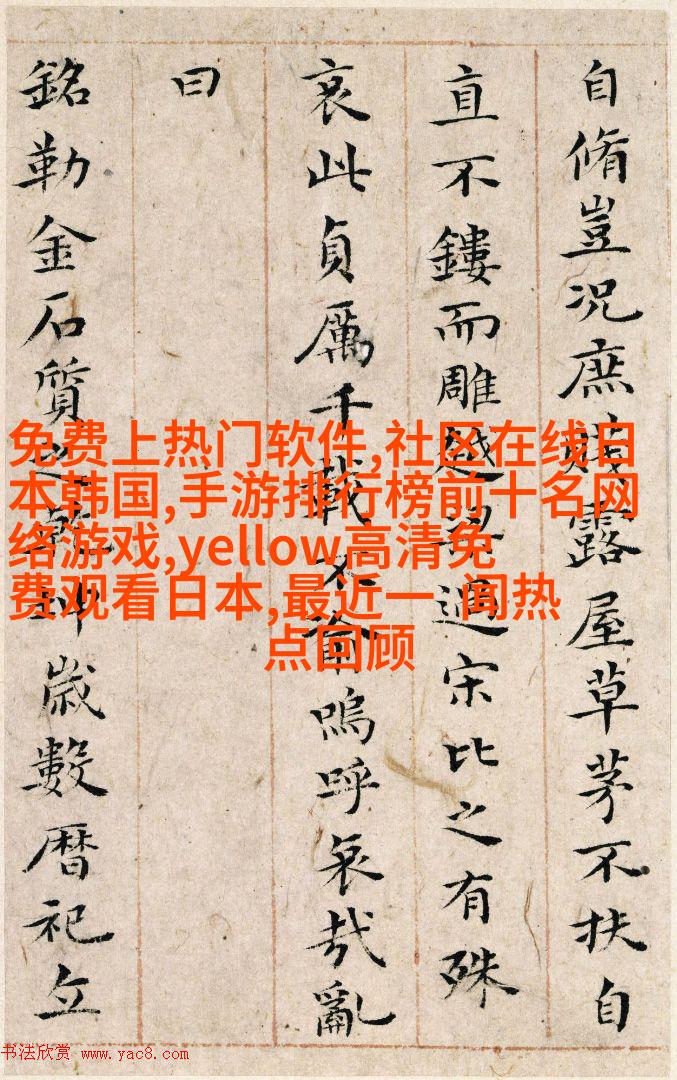 自脩豈况庶賤露屋草茅不扶自
直不鏤而雕越尋遇宋比之有殊
哀此貞厲千載不渝嗚呼哀哉亂
曰
銘勒金石質之乾坤歳數曆祀立
免费上热门软件,社区在线日
本韩国,手游排行榜前十名网
络游戏,yellow高清免
费观看日本,最近一 闻热
点回顾
书法欣赏 www.yac8.com